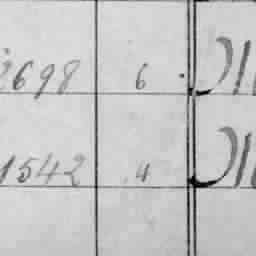 2698 6
1542 4